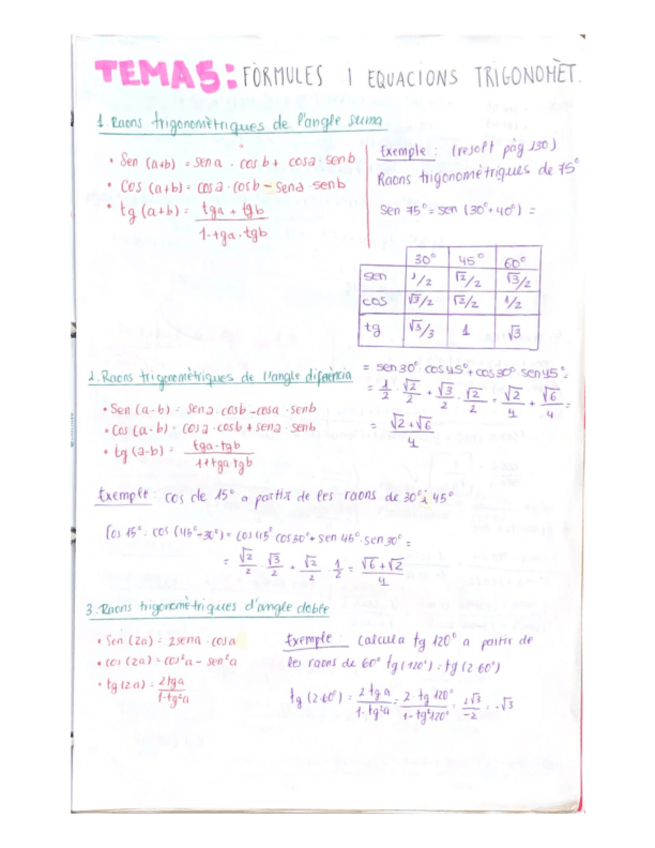 TEMA5: FÒRMULES I EQUACIONS TRIGONOMÈT.
1. Raons trigonomètriques de l'angle suma
• Sen (a+b) = sena . cosb + cosa . senb
• Cos (a+b) = cosa . cosb - sena . senb
• tg (a+b) = tga + tgb / 1-tga.tgb
Exemple : (resolt pàg 130)
Raons trigonomètriques de 75°
Sen 75° = sen (30°+40°) =
30° 45° 60°
sen 1/2 √2/2 √3/2
cos √3/2 √2/2 1/2
tg √3/3 1 √3
= sen30° cos45° + cos30° . sen45° =
= 1/2 . √2/2 + √3/2 . √2/2 = √2/4 + √6/4 =
= √2+√6 / 4
2. Raons trigonomètriques de l'angle diferència
• Sen (a-b) = sena . cosb - cosa . senb
• Cos (a-b) = cosa . cosb + sena . senb
• tg (a-b) = tga-tgb / 1+tga tgb
Exemple : cos de 15° a partir de les raons de 30° i 45°
Cos 15° = cos (45°-30°) = cos45° cos30° + sen 45° . sen 30° =
= √2/2 . √3/2 + √2/2 . 1/2 = √6+√2 / 4
3. Raons trigonomètriques d'angle doble
• Sen (2a) = 2sena . cosa
• cos (2a) = cos²a - sen²a
• tg (2a) = 2tga / 1-tg²a
Exemple : calcula tg 120° a partir de
les raons de 60° tg (120°) = tg (2.60°)
tg (2.60°) = 2tga / 1-tg²a = 2.tg 120° / 1-tg²120° = 2√3 / -2 = -√3